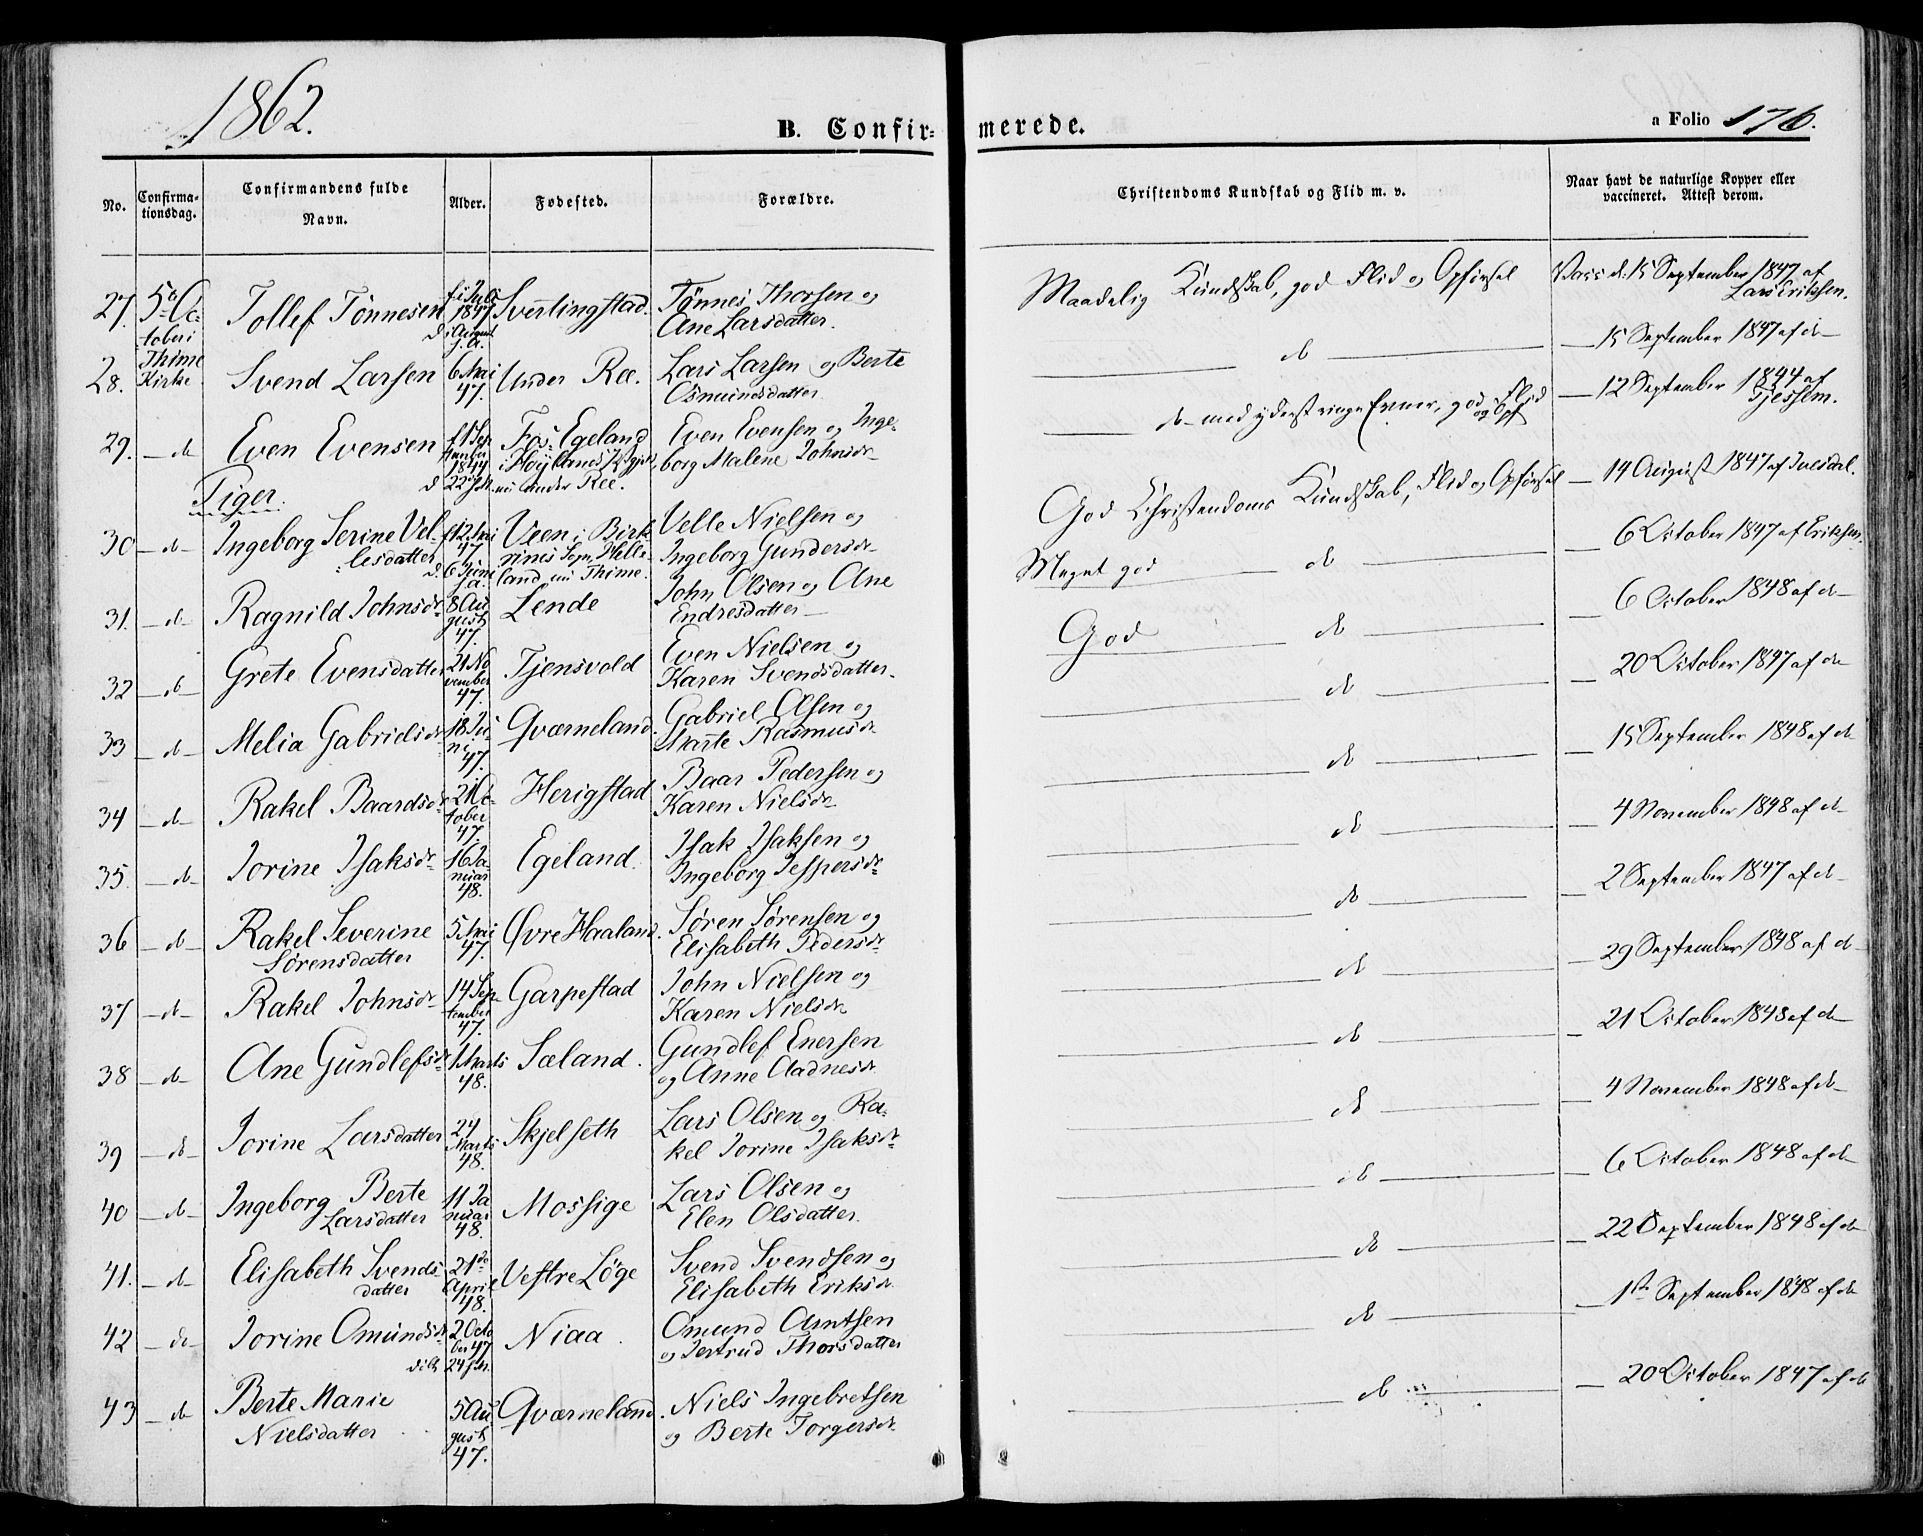 1862.
B. Confir-
merede.
a Folio 176.
No.
Confirma-
tionsdag.
Confirmandens fulde
Navn.
Alder.
Fødested.
Forældre.
Christendoms Kundskab og Flid m. v.
Naar havt de naturlige Kopper eller
vaccineret. Attest derom.
27. 5te Oc-
tober i
Thime
Kirke
Tollef Tønnesen
f. i Juli
1847
d. i August
s. A.
Svertingstad.
Tønnes Thorsen og
Ane Larsdatter.
Maadelig Kundskab, god Flid og Opførsel
Vacc. d. 15 September 1847 af
Lars Eriksen.
28. Svend Larsen
6 Mai
47.
Under Ree.
Lars Larsen og Berte
Osmundsdatter
do
15 September 1847 af do
29. do Even Evensen
f. 1 Sep
tember
1844
d. 22 s. M.
Fos-Egeland
i Høylands
nu under Ree.
Even Evensen og Inge-
borg Malene Johnsdr
do med yderst ringe Evner, god Flid
og Opf
12 September 1844 af
Tjessem.
Piger.
30 do Ingeborg Serine Vel-
lesdatter
f. 12 Mai
47
d. 6 Juni
s. A.
Veen i Birk-
rims Sogn Helle-
land nu Thime.
Velle Nielsen og
Ingeborg Gundersdr
God Christendoms Kundskab, Flid og Opførsel
14 August 1847 af Ivesdal.
31. do Ragnild Johnsdr
8 Au
gust
47.
Lende
John Olsen og Ane
Endresdatter
Meget god do
6 October 1847 af Eriksen.
32 do Grete Evensdatter
21 No
vember
47.
Tjensvold
Even Nielsen og
Karen Svendsdatter.
God do
6 October 1848 af do
33 do Melia Gabrielsdr
18 Ju
ni
47.
Qværneland.
Gabriel Olsen og
Marte Rasmusdr
do
20 October 1847 af do
34 do Rakel Baardsdr
21 Oc-
tober
47.
Herigstad
Baar Pedersen og
Karen Nielsdr
do
15 September 1848 af do
35. do Jorine Isaksdr
16 Ja-
nuar
48.
Egeland.
Isak Isaksen og
Ingeborg Jespersdr
do
4 November 1848 af do
36 do Rakel Severine
Sørensdatter
5 Mai
47.
Øvre Haaland.
Søren Sørensen og
Elisabeth Pedersdr
do
2 September 1847 af do
37 do Rakel Johnsdr
14 Sep-
tember
47.
Garpestad
John Nielsen og
Karen Nielsdr
do
29 September 1848 af do
38 do Ane Gundlefsdr
1 Marts
48.
Sæland.
Gundlef Enersen
og Anne Aadnesdr
do
21 October 1848 af do
39 do Jorine Larsdatter
24
Marts
48.
Skjelseth
Lars Olsen og Ra-
kel Jorine Isaksdr
do
4 November 1848 af do
40 do Ingeborg Berte
Larsdatter
11 Ja
nuar
48.
Mossige
Lars Olsen og
Elen Olsdatter.
do
6 October 1848 af do
41. do Elisabeth Svends-
datter
21de
April
48.
Vestre Løge
Svend Svendsen og
Elisabeth Eriksdr
do
22 September 1848 af do
42 do Jorine Omundsdr
2 Octo
ber 47
døbt 24 s. M.
Niaa.
Omund Arntsen
og Jertrud Thorsdatter
do
1ste September 1848 af do
43 do Berte Marie
Nielsdatter
5 Au
gust
47.
Qværneland.
Niels Ingebretsen
og Berte Torgersdr
do
20 October 1847 af do